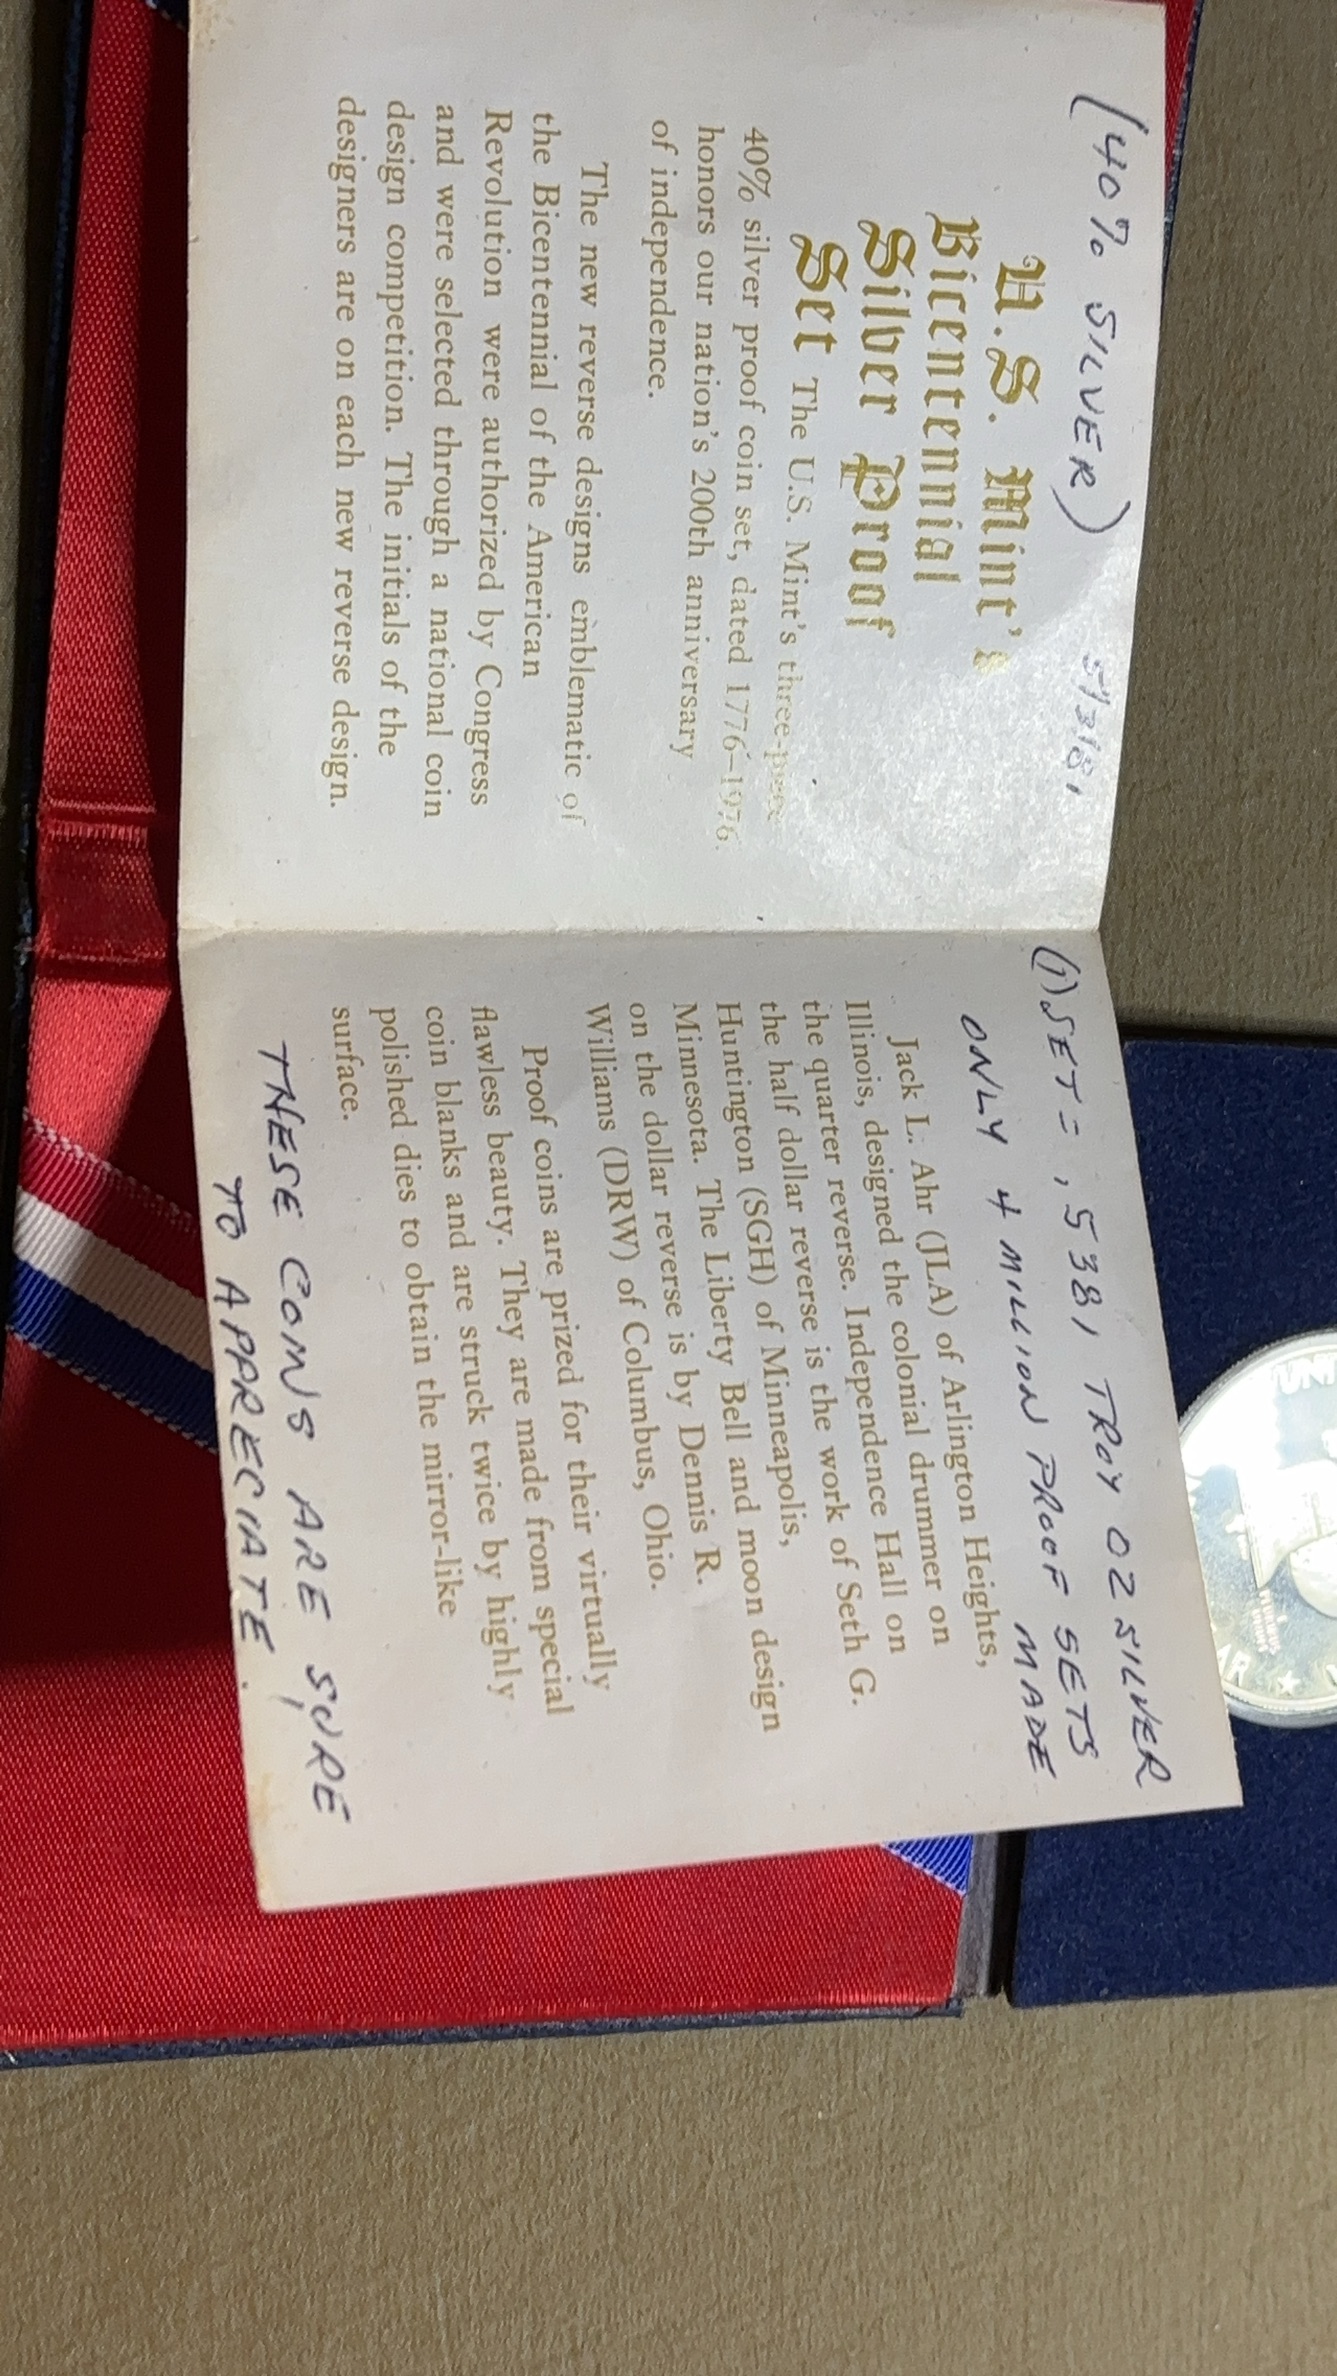 (40% SILVER)
U.S. Mint's
Bicentennial
Silver Proof
Set The U.S. Mint's three-piece
40% silver proof coin set, dated 1776-1976.
honors our nation's 200th anniversary
of independence.
The new reverse designs emblematic of
the Bicentennial of the American
Revolution were authorized by Congress
and were selected through a national coin
design competition. The initials of the
designers are on each new reverse design.
(1) SET = ,5381 TROY OZ SILVER
ONLY 4 MILLION PROOF SETS
MADE
Jack L. Ahr (JLA) of Arlington Heights,
Illinois, designed the colonial drummer on
the quarter reverse. Independence Hall on
the half dollar reverse is the work of Seth G.
Huntington (SGH) of Minneapolis,
Minnesota. The Liberty Bell and moon design
on the dollar reverse is by Dennis R.
Williams (DRW) of Columbus, Ohio.
Proof coins are prized for their virtually
flawless beauty. They are made from special
coin blanks and are struck twice by highly
polished dies to obtain the mirror-like
surface.
THESE COINS ARE SURE
TO APPRECIATE.